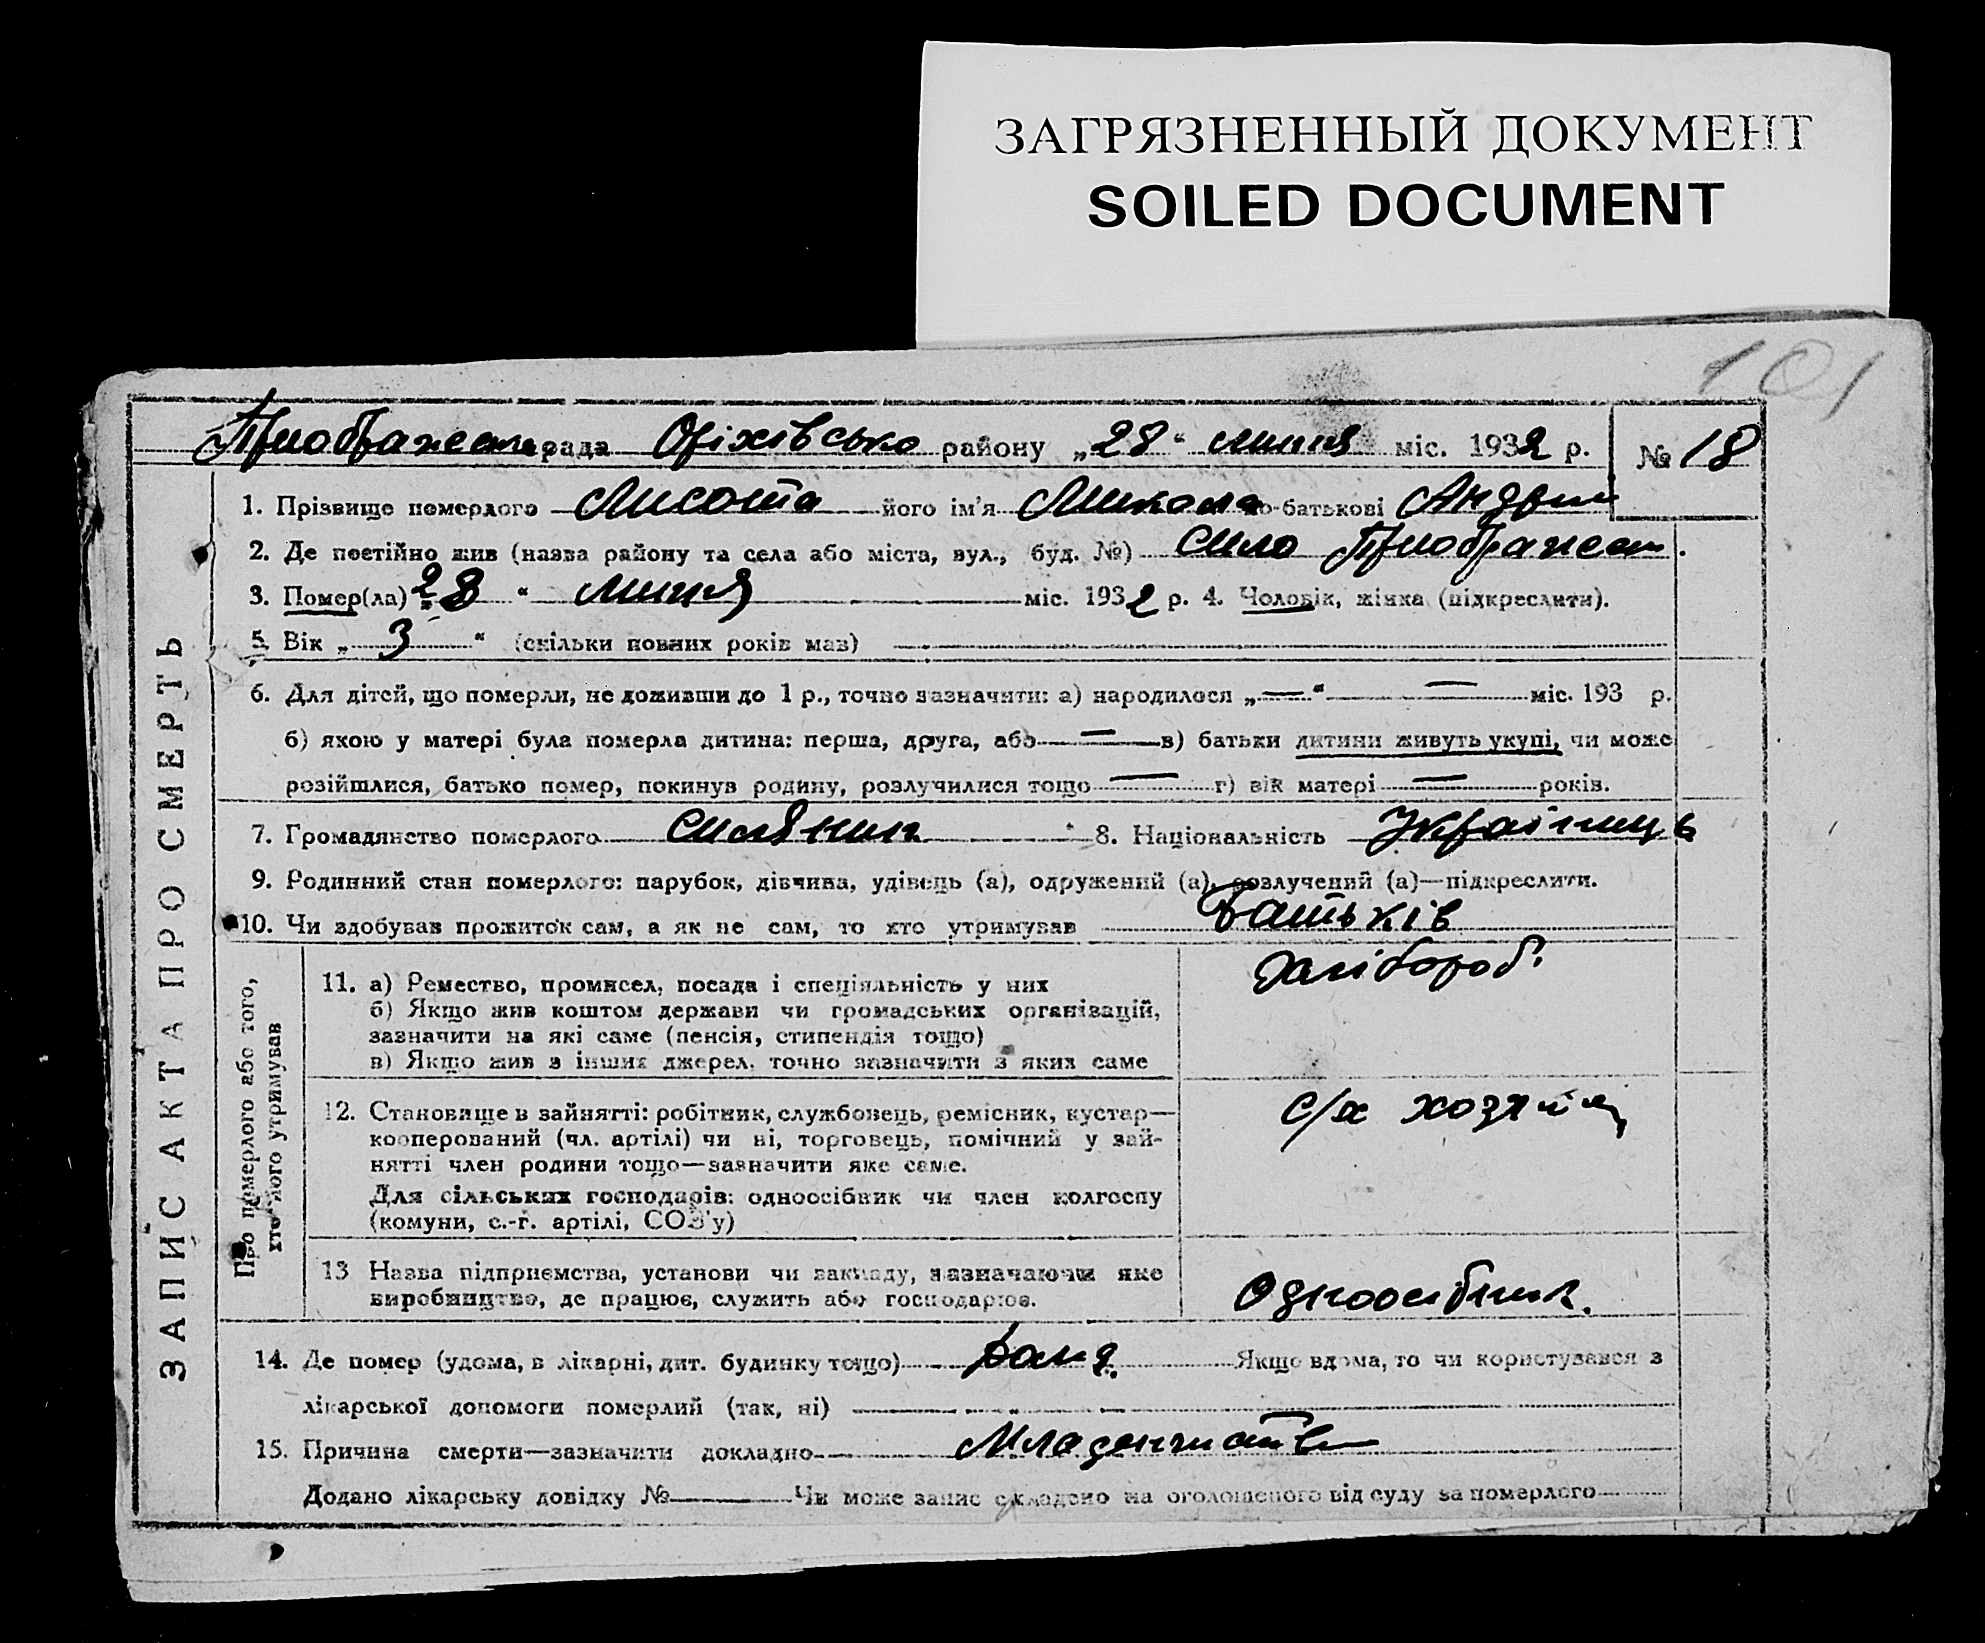 ЗАГРЯЗНЕННЫЙ ДОКУМЕНТ
SOILED DOCUMENT
101
рада Оріхівсько району „28“ липня міс. 1932 р. № 18
1. Прізвище померлого Лисота його ім'я Микола по-батькові Андри
2. Де постійно жив (назва району та села або міста, вул., буд. №) село Преображен.
3. Помер(ла) „28“ липня міс. 1932 р. 4. Чоловік, жінка (підкреслити).
5. Вік „3“ (скільки повних років мав)
6. Для дітей, що померли, не доживши до 1 р., точно зазначити: а) народилося „—“ — міс. 193 р.
б) якою у матері була померла дитина: перша, друга, або — в) батьки дитини живуть укупі, чи може
розійшлися, батько помер, покинув родину, розлучилися тощо — г) вік матері — років.
7. Громадянство померлого селянин 8. Національність Українець
9. Родинний стан померлого: парубок, дівчина, удівець (а), одружений (а), розлучений (а)—підкреслити.
10. Чи здобував прожиток сам, а як не сам, то хто утримував Батьків
ЗАПИС АКТА ПРО СМЕРТЬ
Про померлого або того,
хто його утримував
11. а) Ремество, промисел, посада і спеціяльність у них хлібороб.
б) Якщо жив коштом держави чи громадських організацій,
зазначити на які саме (пенсія, стипендія тощо)
в) Якщо жив з інших джерел, точно зазначити з яких саме
12. Становище в зайнятті: робітник, службовець, ремісник, кустар— с/х хозяин
кооперований (чл. артілі) чи ні, торговець, помічний у зай-
нятті член родини тощо—зазначити яке саме.
Для сільських господарів: одноосібник чи член колгоспу
(комуни, с.-г. артілі, СОЗ'у)
13 Назва підприємства, установи чи закладу, зазначаючи яке
виробництво, де працює, служить або господарює. Одноосібник.
14. Де помер (удома, в лікарні, дит. будинку тощо) дома Якщо вдома, то чи користувався з
лікарської допомоги померлий (так, ні)
15. Причина смерти—зазначити докладно
Додано лікарську довідку № Чи може запис складено на оголошеного від суду за померлого